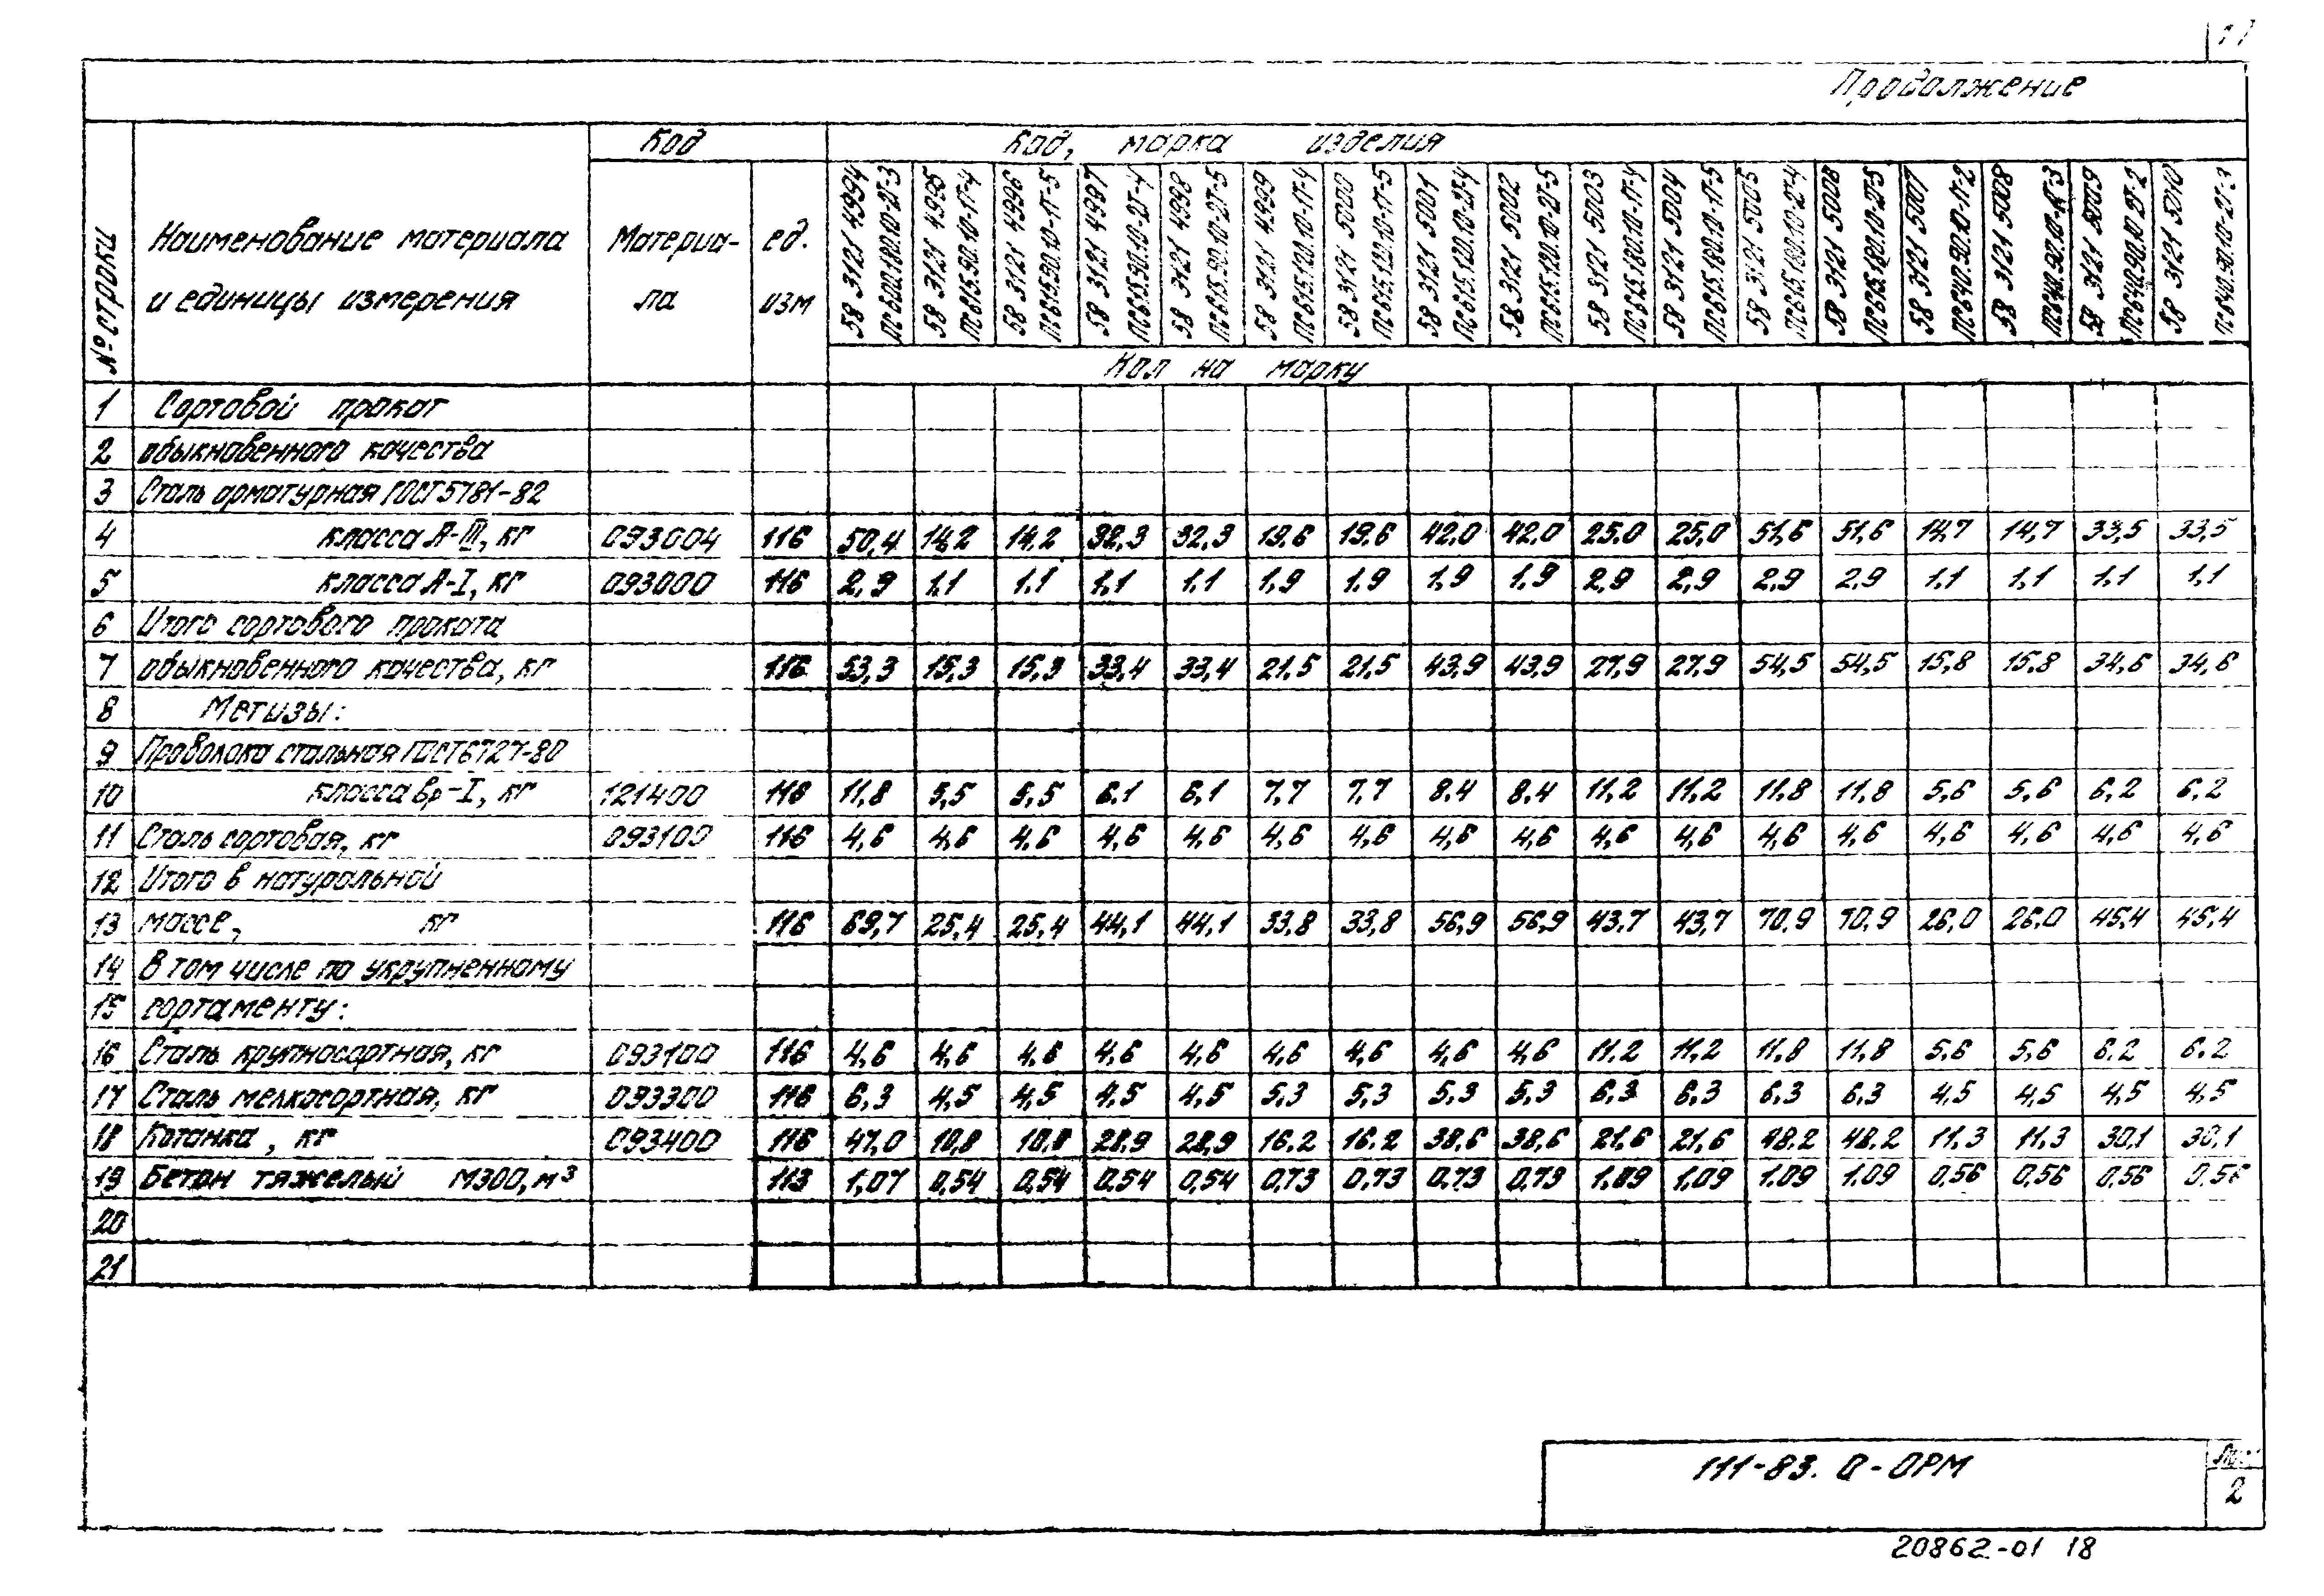 Продолжение
№ строки
Наименование материала
и единицы измерения
Код
Материа-
ла
ед.
изм
Код, марка изделия
58 3121 4994
58 3121 4995
58 3121 4996
58 3121 4997
58 3121 4998
58 3121 4999
58 3121 5000
58 3121 5001
58 3121 5002
58 3121 5003
58 3121 5004
58 3121 5005
58 3121 5008
58 3121 5007
58 3121 5008
58 3121 5009
58 3121 5010
Кол на марку
1 Сортовой прокат
2 обыкновенного качества
3 Сталь арматурная ГОСТ 5781-82
4 класса А-III, кг 093004 116 50,4 14,2 14,2 32,3 32,3 19,6 19,6 42,0 42,0 25,0 25,0 51,6 51,6 14,7 14,7 33,5 33,5
5 класса А-I, кг 093000 116 2,9 1,1 1,1 1,1 1,1 1,9 1,9 1,9 1,9 2,9 2,9 2,9 2,9 1,1 1,1 1,1 1,1
6 Итого сортового проката
7 обыкновенного качества, кг 116 53,3 15,3 15,3 33,4 33,4 21,5 21,5 43,9 43,9 27,9 27,9 54,5 54,5 15,8 15,8 34,6 34,6
8 Метизы:
9 Проволока стальная ГОСТ 6727-80
10 класса Вр-I, кг 121400 116 11,8 5,5 5,5 6,1 6,1 7,7 7,7 8,4 8,4 11,2 11,2 11,8 11,8 5,6 5,6 6,2 6,2
11 Сталь сортовая, кг 093100 116 4,6 4,6 4,6 4,6 4,6 4,6 4,6 4,6 4,6 4,6 4,6 4,6 4,6 4,6 4,6 4,6 4,6
12 Итого в натуральной
13 массе, кг 116 69,7 25,4 25,4 44,1 44,1 33,8 33,8 56,9 56,9 43,7 43,7 70,9 70,9 26,0 26,0 45,4 45,4
14 В том числе по укрупненному
15 сортаменту:
16 Сталь крупносортная, кг 093100 116 4,6 4,6 4,6 4,6 4,6 4,6 4,6 4,6 4,6 11,2 11,2 11,8 11,8 5,6 5,6 6,2 6,2
17 Сталь мелкосортная, кг 093300 116 6,3 4,5 4,5 4,5 4,5 5,3 5,3 5,3 5,3 6,3 6,3 6,3 6,3 4,5 4,5 4,5 4,5
18 Катанка, кг 093400 116 47,0 10,8 10,8 28,9 28,9 16,2 16,2 38,6 38,6 21,6 21,6 48,2 48,2 11,3 11,3 30,1 30,1
19 Бетон тяжелый М300, м³ 113 1,07 0,54 0,54 0,54 0,54 0,73 0,73 0,73 0,73 1,09 1,09 1,09 1,09 0,56 0,56 0,56 0,56
20
21
111-83. 0-ОРМ
2
20862-01 18